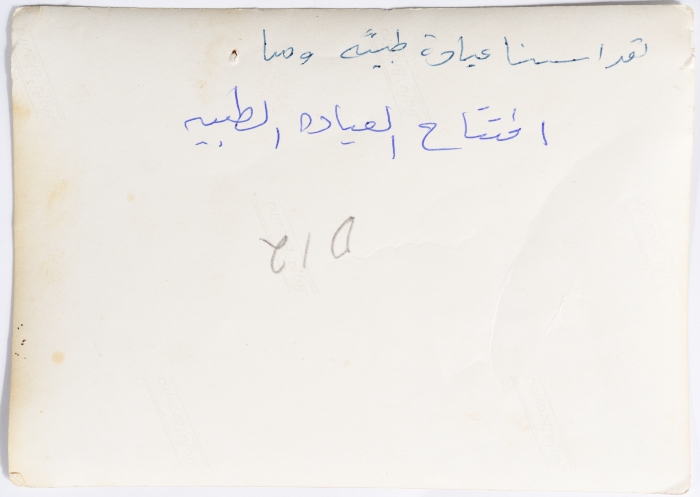 لقد اسسنا عيادة طبيّة وهنا
افتتاح العياده الطبيه